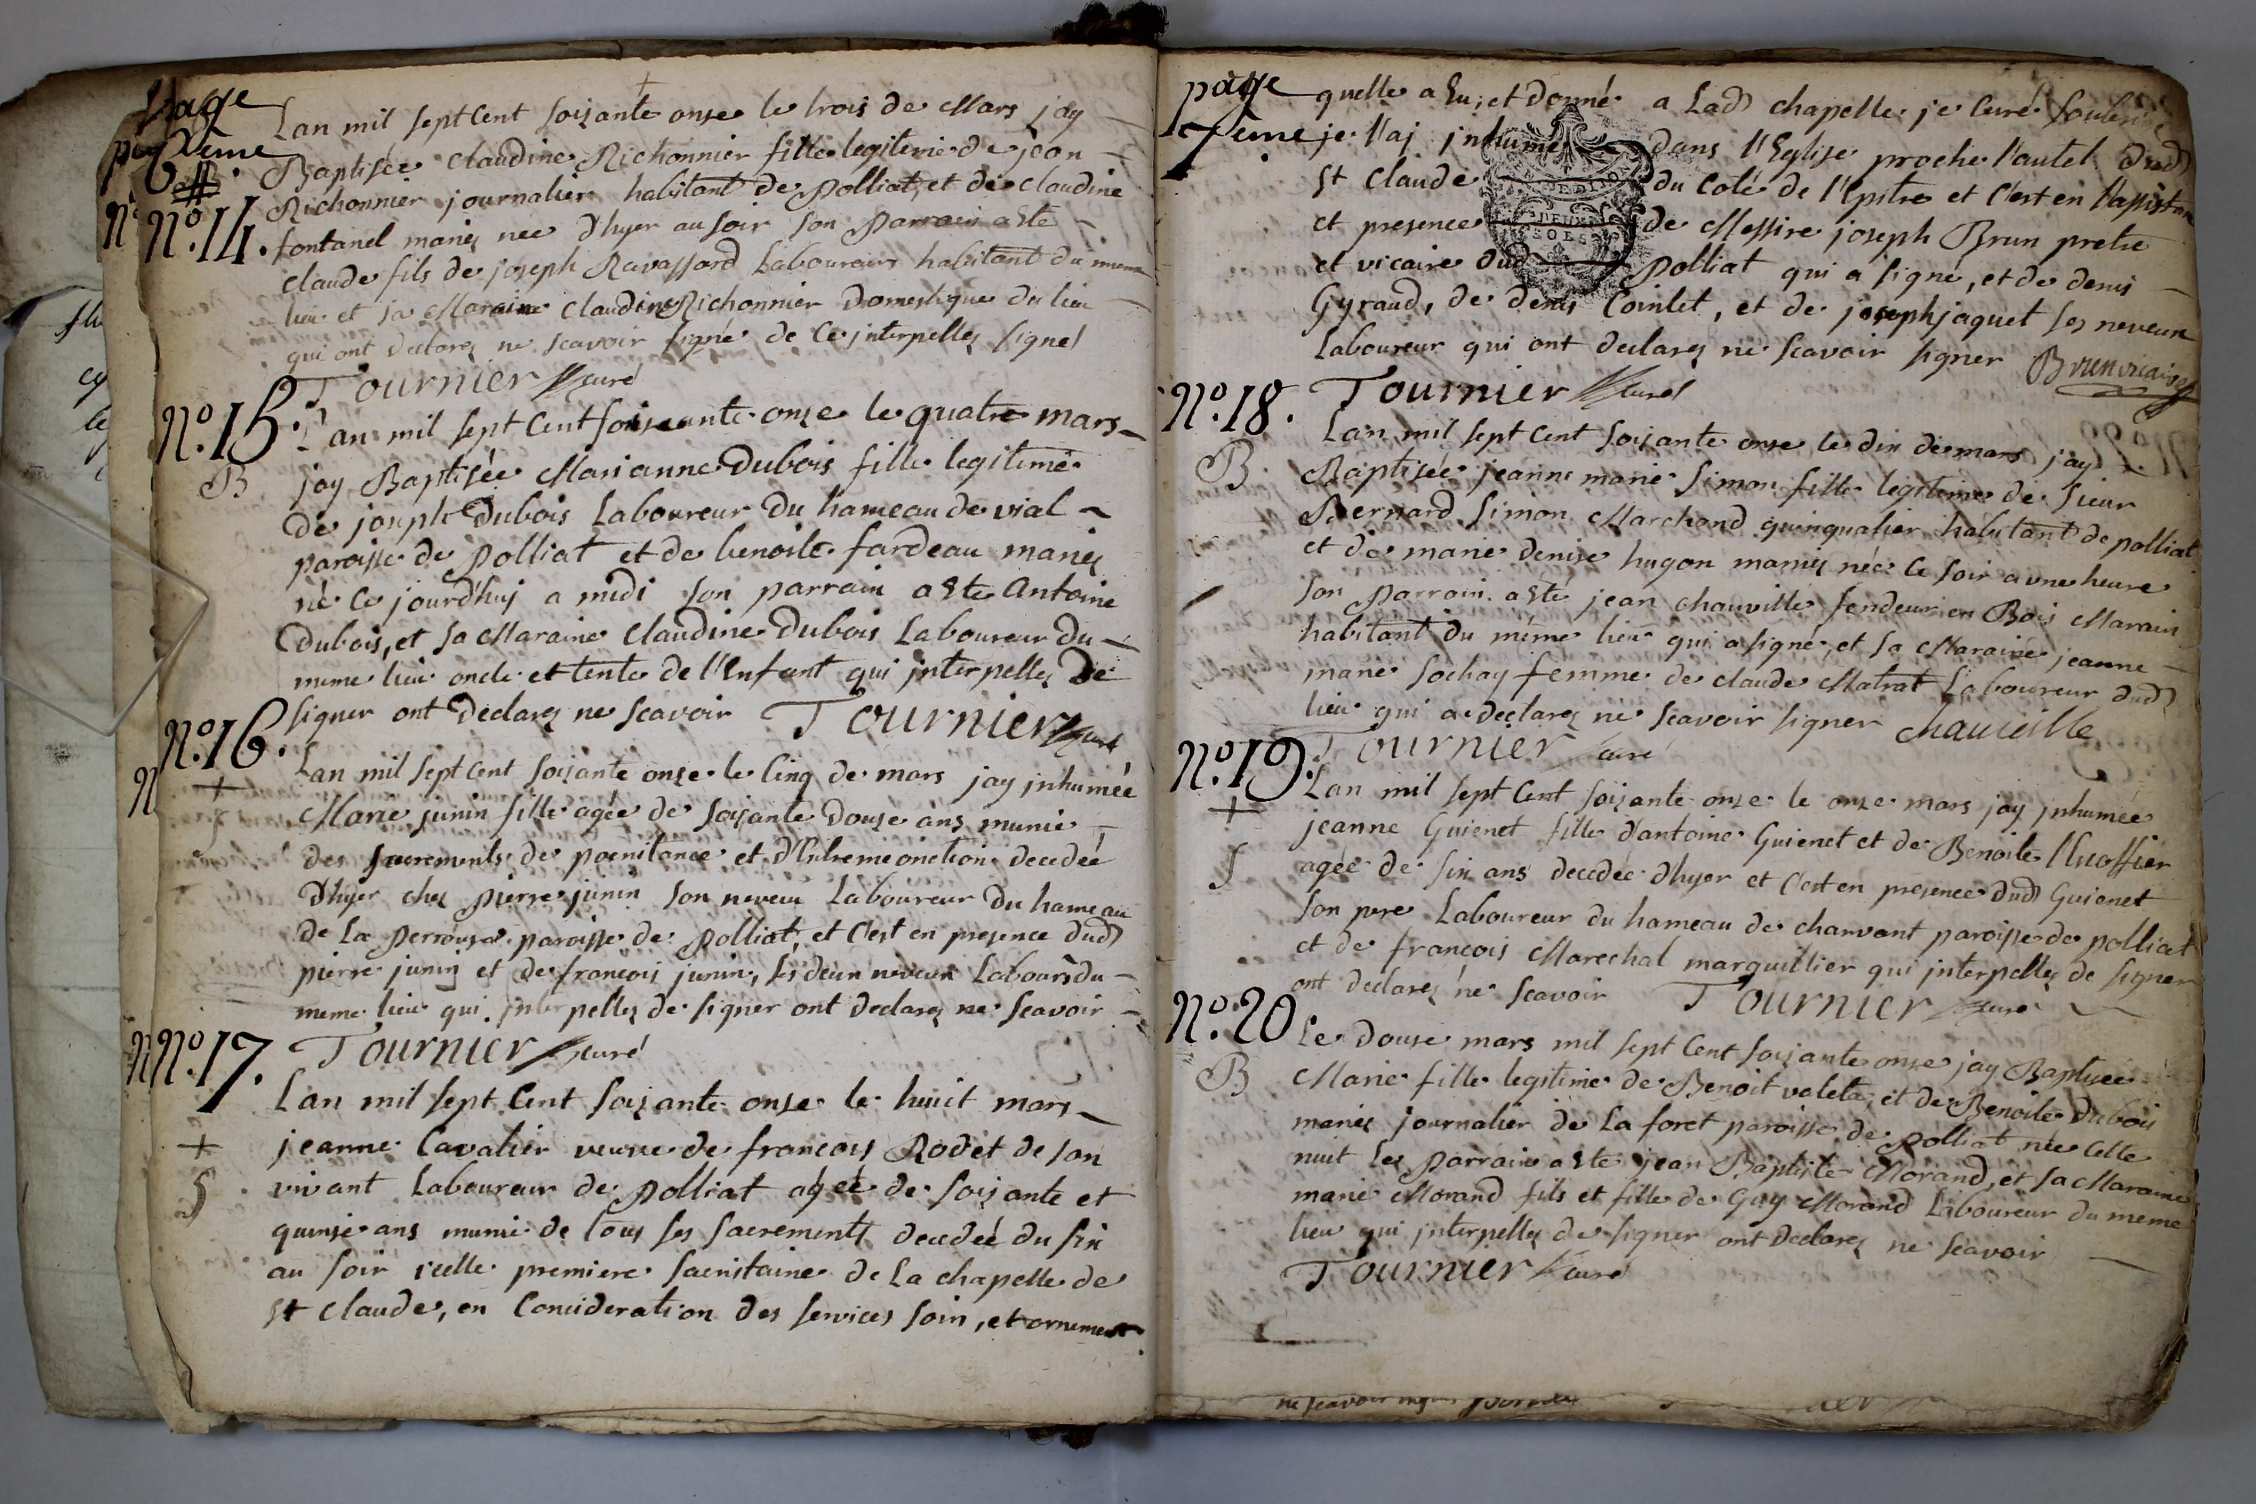 page
6 eme
N.º 14.
Lan mil sept Cent soixante onze le trois de Mars jay
Baptisée claudine Richonnier fille legitime de jean
Richonnier journalier habitant de Polliat, et de claudine
fontanel mariez née d'hyer au soir son Parrain a Eté
claude fils de joseph Ravassard Laboureur habitant du meme
lieu et sa Maraine claudine Richonnier Domestique du lieu
qui ont declarez ne scavoir signé de ce interpellez signes
Tournier curé
N.º 15.
B
L'an mil sept Cent soixante onze le quatre mars
jay Baptisée Marianne Dubois fille legitime
De joseph Dubois Laboureur Du hameau de vial
paroisse de Polliat et de benoite fardeau mariez
né ce jourd'huj a midi son parrain a Eté Antoine
Dubois, et sa Maraine Claudine Dubois Laboureur du
meme lieu oncle et tente de l'Enfant qui jnterpellez De
signer ont Déclarez ne scavoir Tournier curé
N.º 16.
+
Lan mil sept Cent soixante onze le Cinq de mars jay jnhumée
Marie junin fille agée de soixante Douze ans munie
des sacrements de poenitance et d'Extreme onction decedée
D'hyer chez Pierre junin son neveu Laboureur Du hameau
de La Perrouse paroisse de Polliat, et C'est en presence dud
pierre junin et de françois junin, ses deux neveux Labours du
meme lieu qui jnterpellez de signer ont Declarez ne scavoir
Tournier curé
N.º 17.
+
§
Lan mil sept Cent soixante onze le huit mars
jeanne Cavalier veuve de françois Rodet de son
vivant Laboureur de Polliat agée de soixante et
quinze ans munie de tous ses sacrements decedée du six
au soir icelle premiere sacristaine de La chapelle de
St Claude, en Consideration des services soin, et ornement
page
7 eme
quelle a Eu, et donné a Lad chapelle je Curé soulsigné
je l'aj jnhumée dans l'Eglise proche l'autel dud
St Claude du Coté de l'Epitre et C'est en l'assistance
et presence de Messire joseph Brun pretre
et vicaire dud Polliat qui a signé, et de denis
Gyraud, de denis Cointet, et de joseph jaquet ses neveux
Laboureur qui ont declarez ne scavoir signer Brun vicaire
Tournier curé
N.º 18.
B.
Lan mil sept Cent soixante onze le dix de mars jay
Baptisée jeanne marie Simon fille legitime de Sieur
Bernard Simon Marchand quinqualier habitant de polliat
et de marie denise hugon mariez née Ce soir a une heure
son Parrain a Eté jean chauville fendeur en Bois Marain
habitant du même lieu qui a signé, et sa Maraine jeanne
marie Sochay femme de claude Matrat Laboureur dud
lieu qui a declarez ne scavoir signer chauville
Tournier curé
N.º 19.
+
§
Lan mil sept Cent soixante onze le onze mars jay jnhumée
jeanne Guienet fille d'antoine Guienet et de Benoite
agée de six ans decedée d'hyer et C'est en presence Dud Guienet
son pere Laboureur du hameau de charvant paroisse de polliat
et de françois Marechal marguillier qui jnterpellez de signer
ont declarez ne scavoir Tournier curé
N.º 20.
B
Le Douze mars mil sept Cent soixante onze jay Baptisée
Marie fille legitime de Benoit valeta, et de Benoite Duboi
mariez journalier de La foret paroisse de Polliat née Cette
nuit Le Parrain a Eté jean Baptiste Morand, et sa Maraine
marie Morand fils et fille de Guy Morand Laboureur du meme
lieu qui jnterpellez de signer ont declarez ne scavoir
Tournier curé
ne scavoir